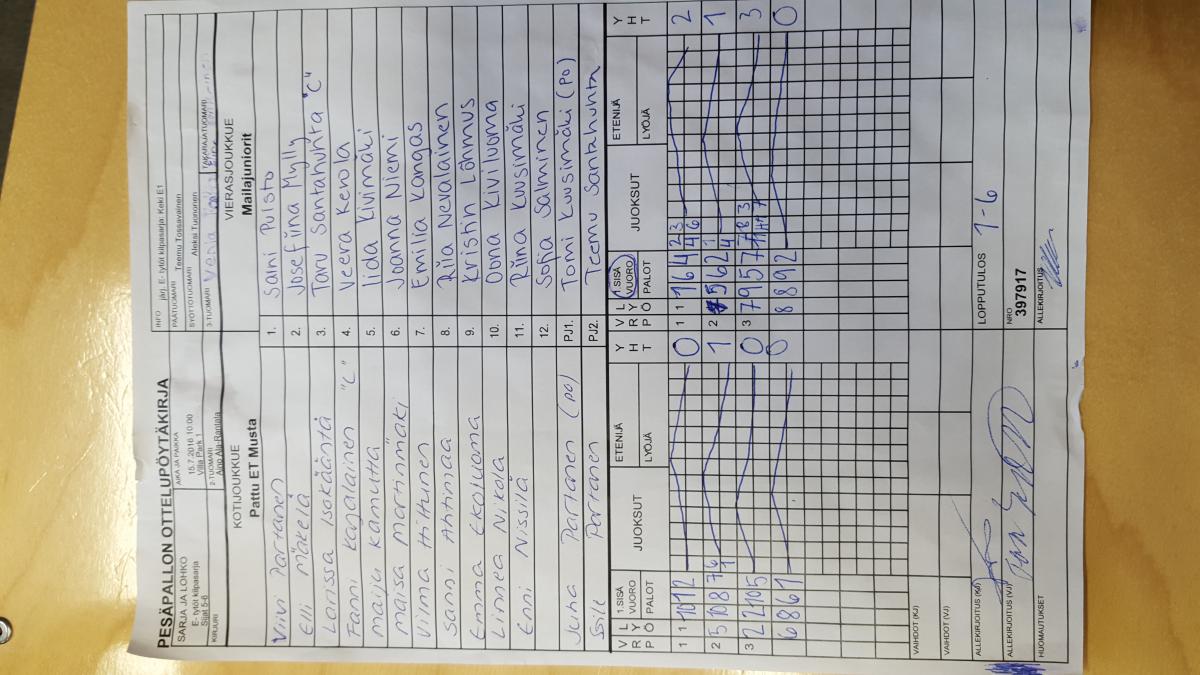 PESÄPALLON OTTELUPÖYTÄKIRJA
SARJA JA LOHKO
E- tytöt kilpasarja
Sijat 5-6
AIKA JA PAIKKA
15.7.2016 10:00
Villa Park 1
INFO järj. E- tytöt kilpasarja: Keki E1
PÄÄTUOMARI Teemu Tossavainen
SYÖTTÖTUOMARI Aleksi Tuunonen
KIRJURI
2-TUOMARI
Aino Ala-Rantala
3-TUOMARI
TAKARAJATUOMARI
KOTIJOUKKUE
Pattu ET Musta
VIERASJOUKKUE
Mailajuniorit
Viivi Partanen 1. Saini Pulsto
Elli Mäkelä 2. Josefiina Mylly
Lorissa Isokääntä 3. Taru Santahuhta "C"
Fanni Kajalainen "C" 4. Veera Kerola
maiju kamutta 5. Iida Kivimäki
maisa martinmäki 6. Joanna Niemi
Viima Hiltunen 7. Emilia Kangas
Sanni Ahtinaa 8. Riia Nevalainen
Emma Ekoluoma 9. Kristin Lõhmus
Linnea Nikola 10. Oona Kiviluoma
Enni Nissilä 11. Riina Kuusimäki
12. Sofia Salminen
Juha Partanen (PO) PJ1. Tomi Kuusimäki (PO)
Partanen PJ2. Teemu Santahuhta
V R P L Y Ö 1.SISÄ VUORO PALOT JUOKSUT ETENIJÄ LYÖJÄ Y H T V R P L Y Ö 1.SISÄ VUORO PALOT JUOKSUT ETENIJÄ LYÖJÄ Y H T
1 1 10 1 2 0 1 1 1 6 4 2 3 4 6 2
2 5 10 8 7 6 1 1 2 5 6 2 1 4 1
3 2 2 10 5 0 3 7 9 5 7 7 8 3 3
6 8 6 1 0 8 8 9 2 0
VAIHDOT (KJ)
VAIHDOT (VJ)
ALLEKIRJOITUS (KJ)
LOPPUTULOS 1-6
ALLEKIRJOITUS (VJ)
NRO
397917
HUOMAUTUKSET
ALLEKIRJOITUS